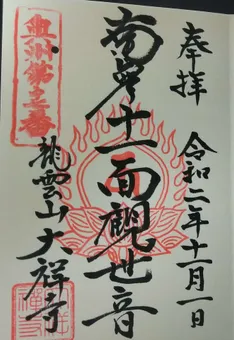 奉拝
令和二年十一月一日
南無十一面觀世音
奥州第三番
龍雲山大祥寺